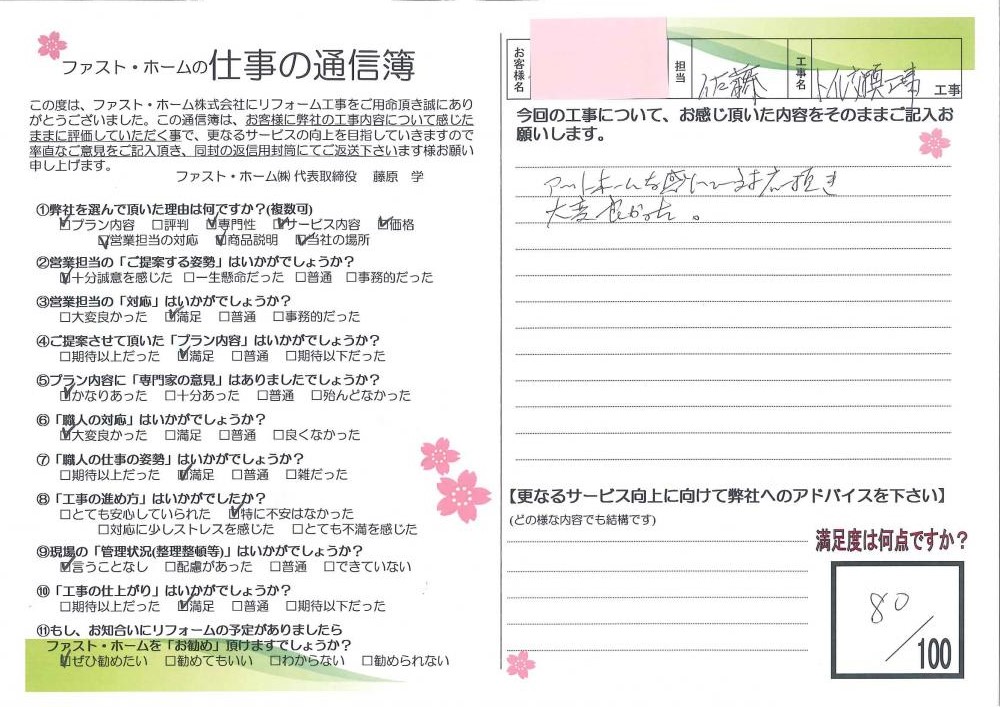 ファスト・ホームの仕事の通信簿
この度は、ファスト・ホーム株式会社にリフォーム工事をご用命頂き誠にあり
がとうございました。この通信簿は、お客様に弊社の工事内容について感じた
ままに評価していただく事で、更なるサービスの向上を目指していきますので
率直なご意見をご記入頂き、同封の返信用封筒にてご返送下さいます様お願い
申し上げます。
ファスト・ホーム㈱ 代表取締役 藤原 学
①弊社を選んで頂いた理由は何ですか?(複数可)
☑プラン内容 □評判 ☑専門性 ☑サービス内容 ☑価格
☑営業担当の対応 ☑商品説明 ☑当社の場所
②営業担当の「ご提案する姿勢」はいかがでしょうか?
☑十分誠意を感じた □一生懸命だった □普通 □事務的だった
③営業担当の「対応」はいかがでしょうか?
□大変良かった ☑満足 □普通 □事務的だった
④ご提案させて頂いた「プラン内容」はいかがでしょうか?
□期待以上だった ☑満足 □普通 □期待以下だった
⑤プラン内容に「専門家の意見」はありましたでしょうか?
☑かなりあった □十分あった □普通 □殆んどなかった
⑥「職人の対応」はいかがでしょうか?
☑大変良かった □満足 □普通 □良くなかった
⑦「職人の仕事の姿勢」はいかがでしょうか?
□期待以上だった ☑満足 □普通 □雑だった
⑧「工事の進め方」はいかがでしたか?
□とても安心していられた ☑特に不安はなかった
□対応に少しストレスを感じた □とても不満を感じた
⑨現場の「管理状況(整理整頓等)」はいかがでしょうか?
☑言うことなし □配慮があった □普通 □できていない
⑩「工事の仕上がり」はいかがでしょうか?
□期待以上だった ☑満足 □普通 □期待以下だった
⑪もし、お知合いにリフォームの予定がありましたら
ファスト・ホームを「お勧め」頂けますでしょうか?
☑ぜひ勧めたい □勧めてもいい □わからない □勧められない
お客様名 担当 佐藤 工事名 トイレ交換工事 工事
今回の工事について、お感じ頂いた内容をそのままご記入お
願いします。
アットホームな感じ
大変良かった。
【更なるサービス向上に向けて弊社へのアドバイスを下さい】
(どの様な内容でも結構です)
満足度は何点ですか?
80/100